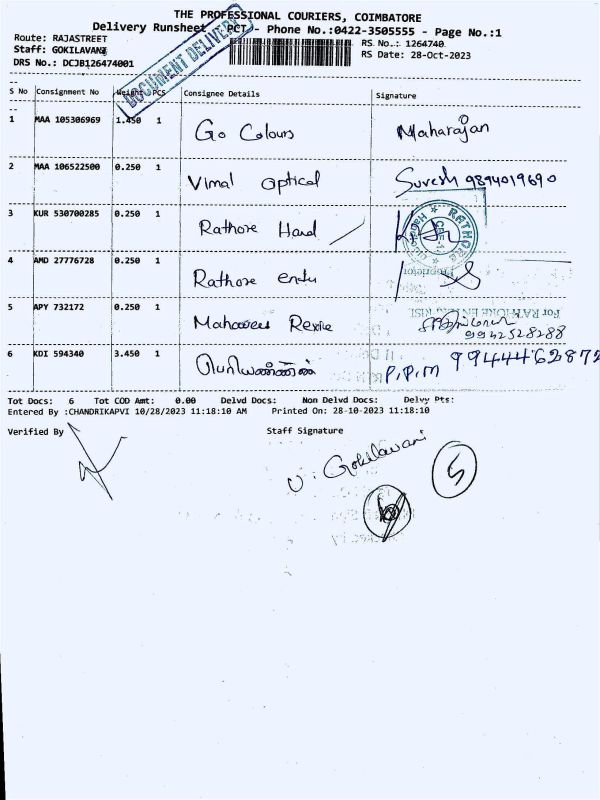 THE PROFESSIONAL COURIERS, COIMBATORE
Delivery Runsheet - PCT - Phone No.:0422-3505555 - Page No.:1
Route: RAJASTREET
RS No.: 1264740
Staff: GOKILAVANI
RS Date: 28-Oct-2023
DRS No.: DCJB126474001
DOCUMENT DELIVERY
S No Consignment No Weight PCS Consignee Details Signature
1 MAA 105306969 1.450 1 Go Colours Maharajan
2 MAA 106522500 0.250 1 Vimal optical Suresh 9894019690
3 KUR 530700285 0.250 1 Rathore Hard
RATHORE
Proprietor
4 AMD 27776728 0.250 1 Rathore
For RATHORE
5 APY 732172 0.250 1
9942528288
6 KDI 594340 3.450 1 P.P.M 9944462872
Tot Docs: 6 Tot COD Amt: 0.00 Delvd Docs: Non Delvd Docs: Delvy Pts:
Entered By :CHANDRIKAPVI 10/28/2023 11:18:10 AM Printed On: 28-10-2023 11:18:10
Verified By Staff Signature
U. Gokilavani
5